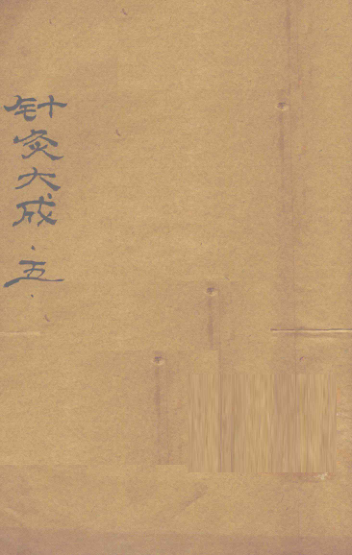 针灸大成·五·